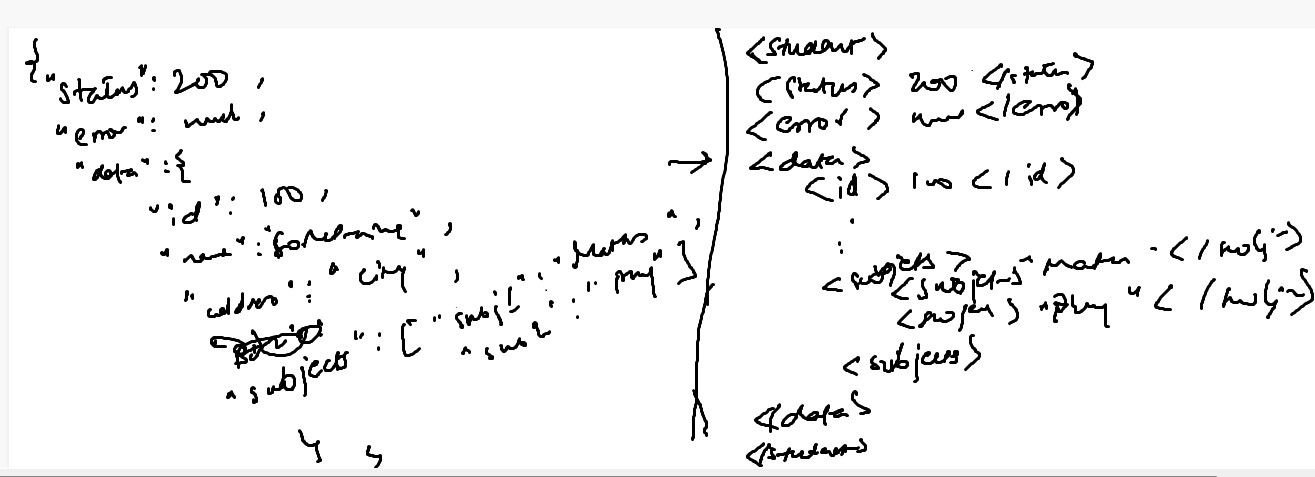 {
"status": 200 ,
"error": null ,
"data" :{
"id": 100 ,
"name": "Somename" ,
"address": "city" ,
"subjects": [ "subj1": "Maths",
"sub2": "phy" ]
}
}
→
<student>
<status> 200 </status>
<error> null </error>
<data>
<id> 100 </id>
.
:
<subjects>
<subject> "Maths" </subject>
<subject> "phy" </subject>
<subjects>
</data>
</student>